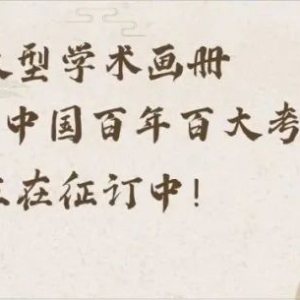 型学术画册
中国百年百大考
在征订中！